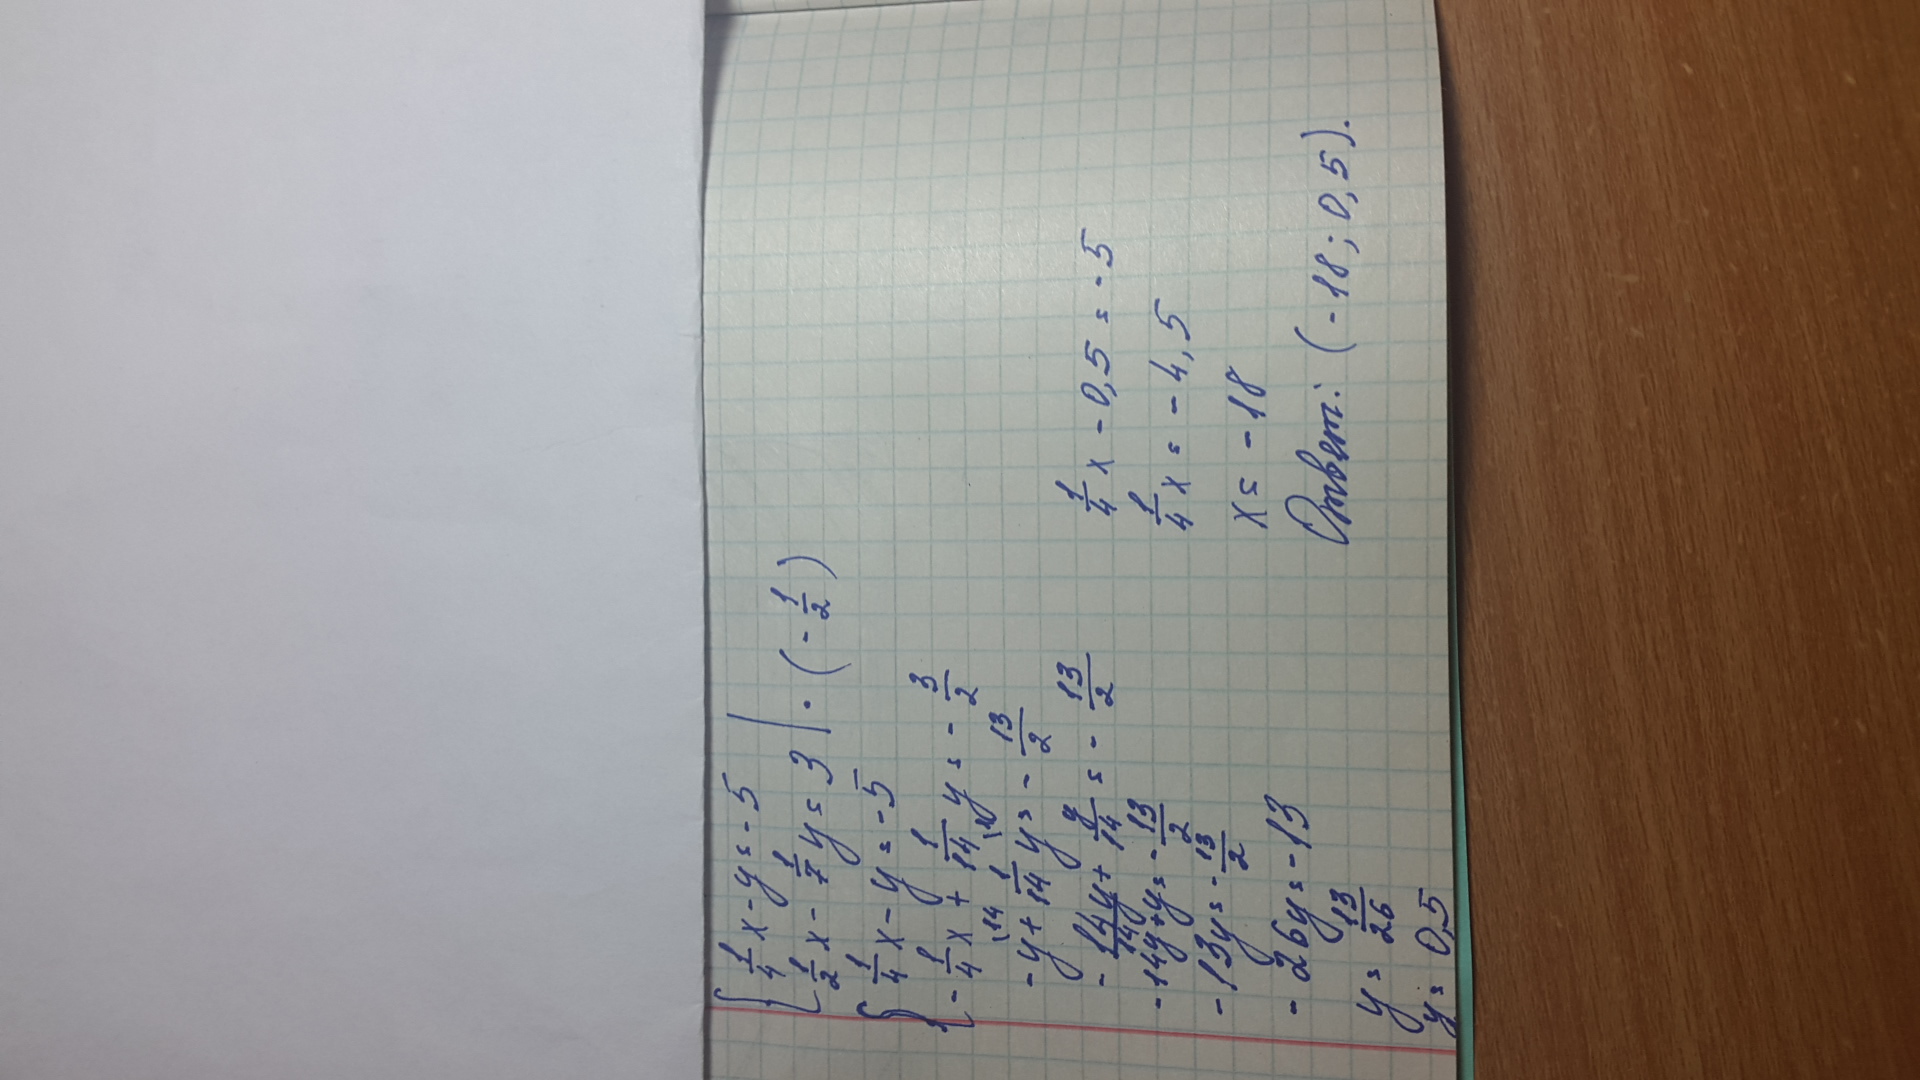 { 1/4 x - y = -5
1/2 x - 1/7 y = 3 | · (- 1/2)
{ 1/4 x - y = -5
- 1/4 x + 1/14 y = - 3/2
- y + 1/14 y = - 13/2
- 14y/14 + y/14 = - 13/2
-14y + y = - 13/2
-13y = - 13/2
- 26y = -13
y = 13/26
y = 0,5
1/4 x - 0,5 = -5
1/4 x = -4,5
x = -18
Ответ: (-18; 0,5).